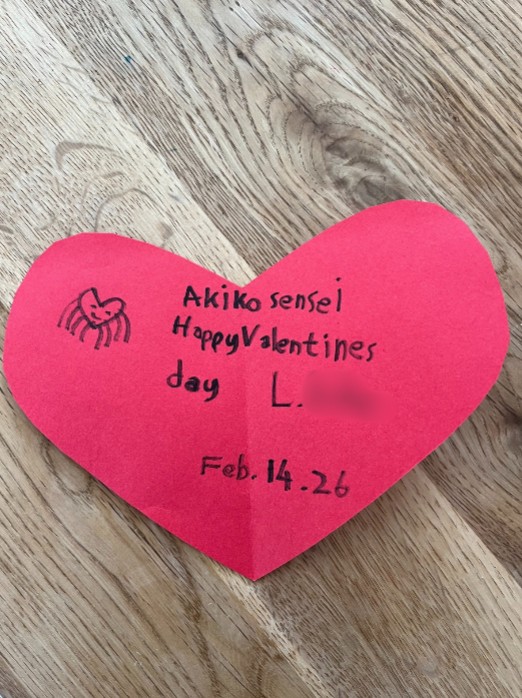 Akiko sensei
Happy Valentines
day L.
Feb. 14. 26